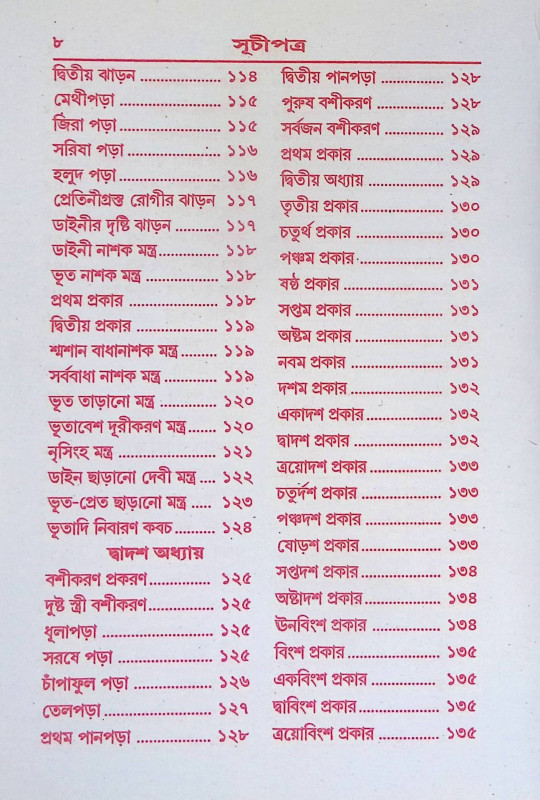 ৮
সূচীপত্র
দ্বিতীয় ঝাড়ন .................. ১১৪
মেথীপড়া ........................ ১১৫
জিরা পড়া ....................... ১১৫
সরিষা পড়া ..................... ১১৬
হলুদ পড়া ....................... ১১৬
প্রেতিনীগ্রস্ত রোগীর ঝাড়ন ১১৭
ডাইনীর দৃষ্টি ঝাড়ন ........... ১১৭
ডাইনী নাশক মন্ত্র .............. ১১৮
ভূত নাশক মন্ত্র ................. ১১৮
প্রথম প্রকার .................... ১১৮
দ্বিতীয় প্রকার .................. ১১৯
শ্মশান বাধানাশক মন্ত্র ......... ১১৯
সর্ববাধা নাশক মন্ত্র ............ ১১৯
ভূত তাড়ানো মন্ত্র .............. ১২০
ভূতাবেশ দূরীকরণ মন্ত্র ........ ১২০
নৃসিংহ মন্ত্র ...................... ১২১
ডাইন ছাড়ানো দেবী মন্ত্র .... ১২২
ভূত-প্রেত ছাড়ানো মন্ত্র ..... ১২৩
ভূতাদি নিবারণ কবচ ........... ১২৪
দ্বাদশ অধ্যায়
বশীকরণ প্রকরণ .............. ১২৫
দুষ্ট স্ত্রী বশীকরণ ............... ১২৫
ধূলাপড়া ......................... ১২৫
সরষে পড়া ..................... ১২৫
চাঁপাফুল পড়া .................. ১২৬
তেলপড়া ........................ ১২৭
প্রথম পানপড়া ................. ১২৮
দ্বিতীয় পানপড়া ................ ১২৮
পুরুষ বশীকরণ ................. ১২৮
সর্বজন বশীকরণ ............... ১২৯
প্রথম প্রকার .................... ১২৯
দ্বিতীয় অধ্যায় .................. ১২৯
তৃতীয় প্রকার ................... ১৩০
চতুর্থ প্রকার .................... ১৩০
পঞ্চম প্রকার .................... ১৩০
ষষ্ঠ প্রকার ...................... ১৩১
সপ্তম প্রকার .................... ১৩১
অষ্টম প্রকার .................... ১৩১
নবম প্রকার ..................... ১৩১
দশম প্রকার ..................... ১৩২
একাদশ প্রকার ................. ১৩২
দ্বাদশ প্রকার .................... ১৩২
ত্রয়োদশ প্রকার ................ ১৩৩
চতুর্দশ প্রকার .................. ১৩৩
পঞ্চদশ প্রকার ................. ১৩৩
ষোড়শ প্রকার .................. ১৩৩
সপ্তদশ প্রকার .................. ১৩৪
অষ্টাদশ প্রকার ................. ১৩৪
ঊনবিংশ প্রকার ................ ১৩৪
বিংশ প্রকার .................... ১৩৫
একবিংশ প্রকার ............... ১৩৫
দ্বাবিংশ প্রকার ................. ১৩৫
ত্রয়োবিংশ প্রকার .............. ১৩৫